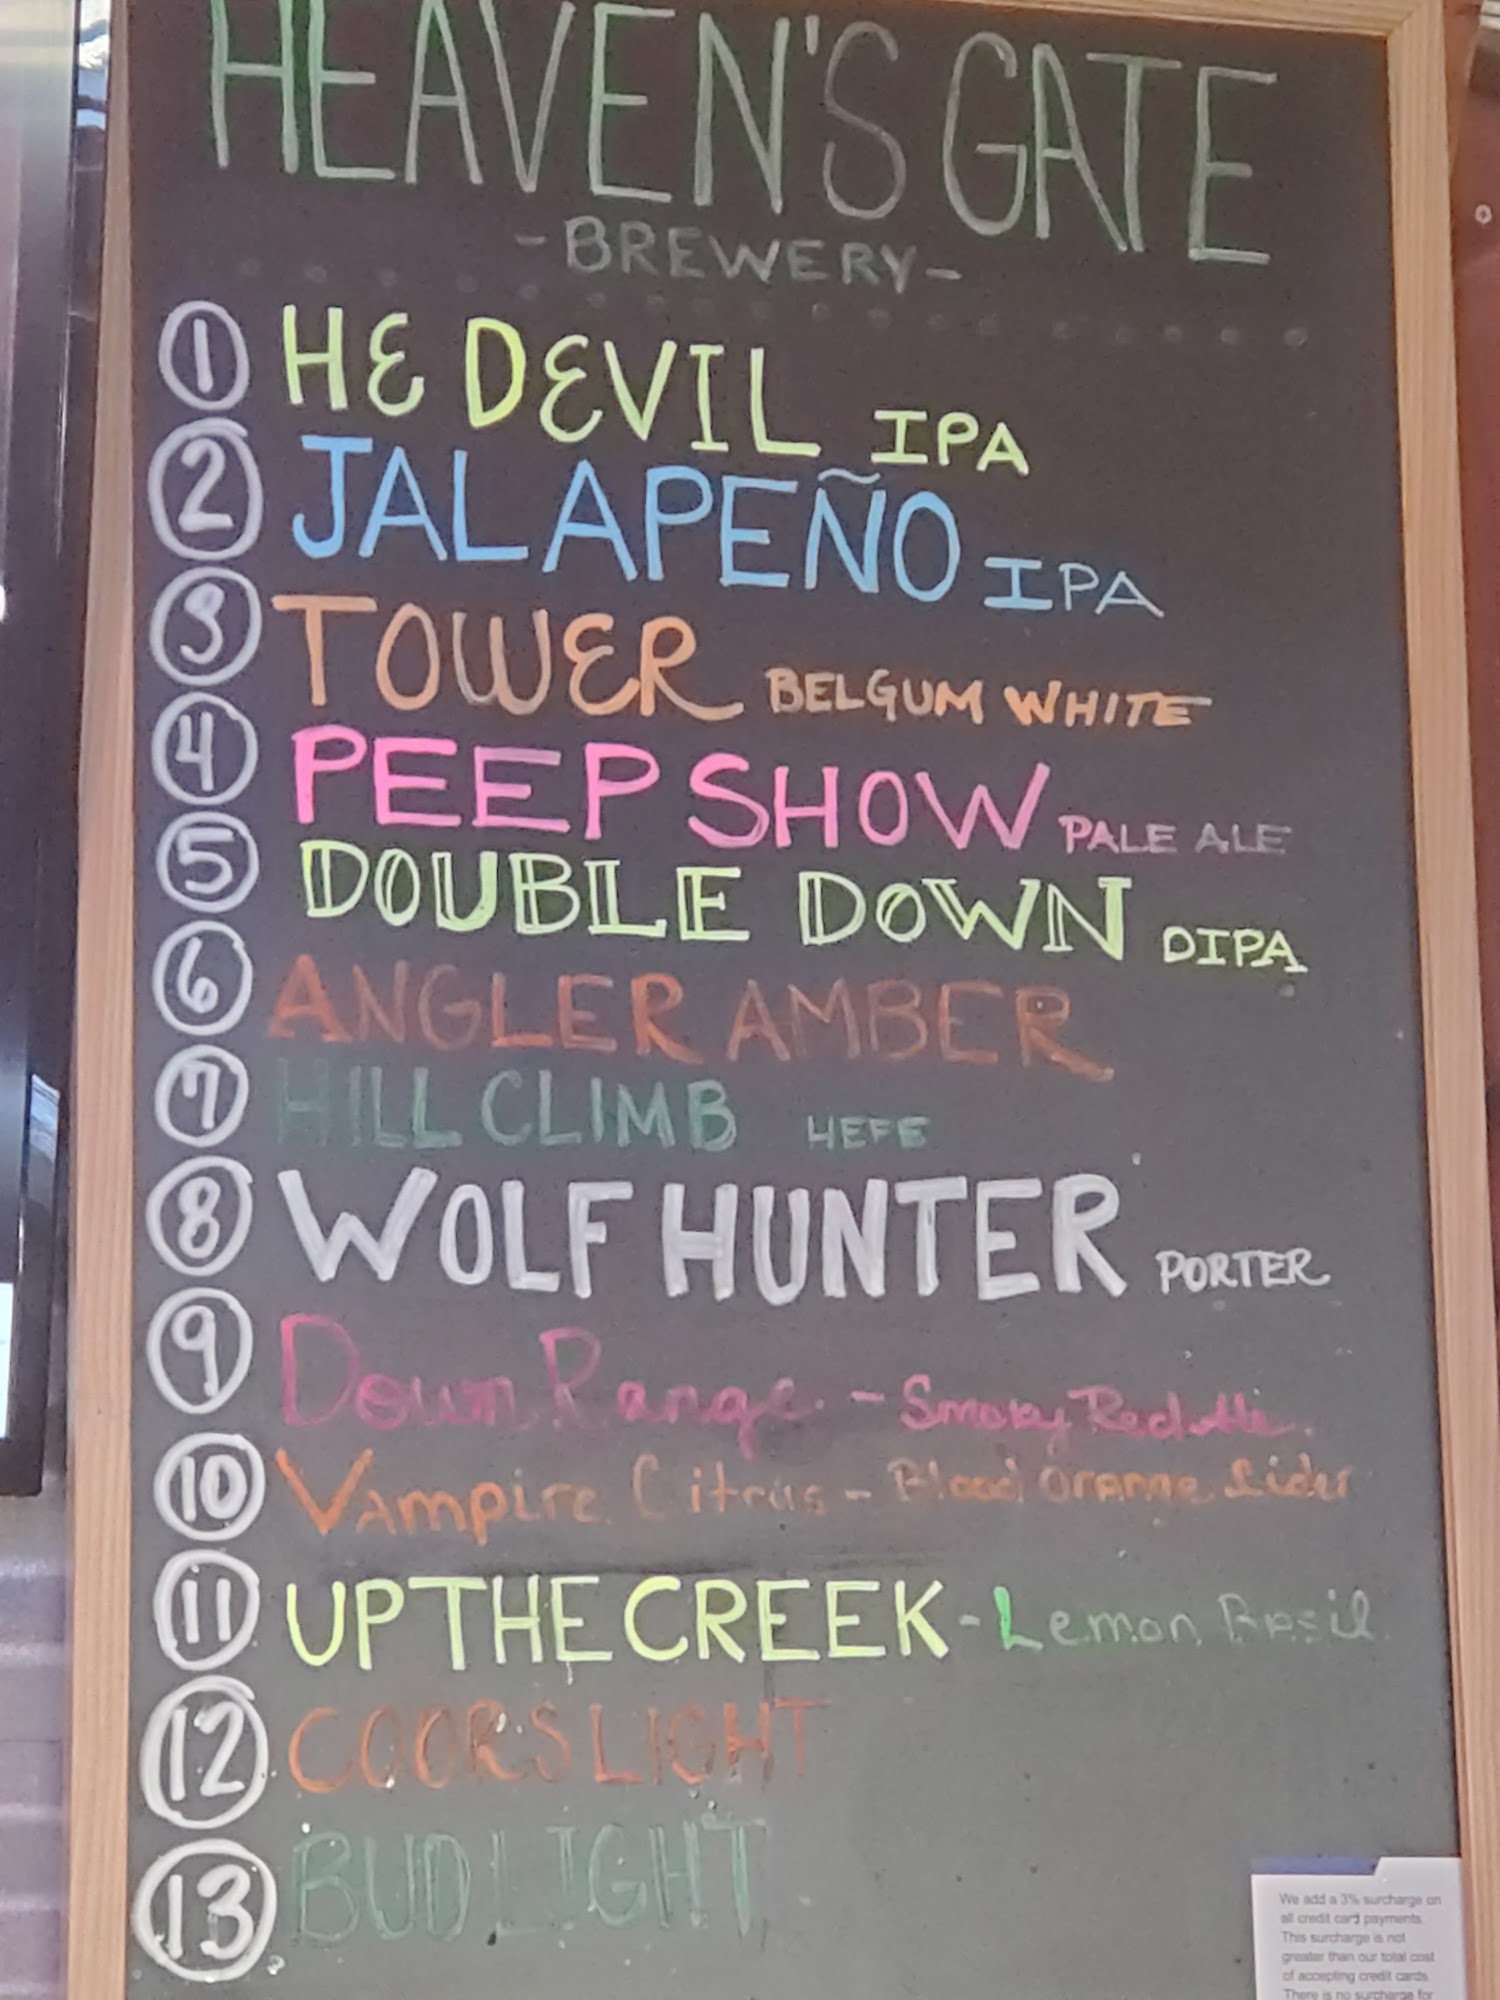 HEAVEN'S GATE
- BREWERY -
1 HE DEVIL IPA
2 JALAPEÑO IPA
3 TOWER BELGUM WHITE
4 PEEP SHOW PALE ALE
5 DOUBLE DOWN DIPA
6 ANGLER AMBER
7 HILL CLIMB HEFE
8 WOLF HUNTER PORTER
9 Down Range - Smoky
10 Vampire Citrus - Blood Orange Sider
11 UP THE CREEK - Lemon Basil
12 COORS LIGHT
13 BUD LIGHT
We add a 3% surcharge on
all credit card payments.
This surcharge is not
greater than our total cost
of accepting credit cards.
There is no surcharge for